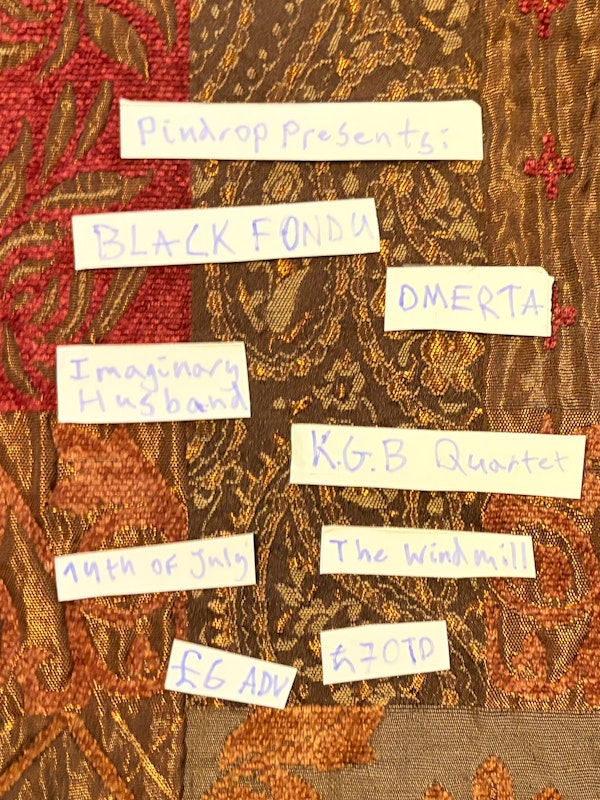 Pindrop Presents:
BLACK FONDU
OMERTA
Imaginary
Husband
K.G.B Quartet
14th of July
The Windmill
£6 ADV
£7 OTD